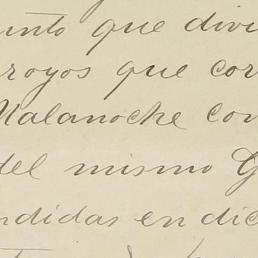 unto que divi
rroyos que cor
Malanoche con
del mismo G
ndidas en dic